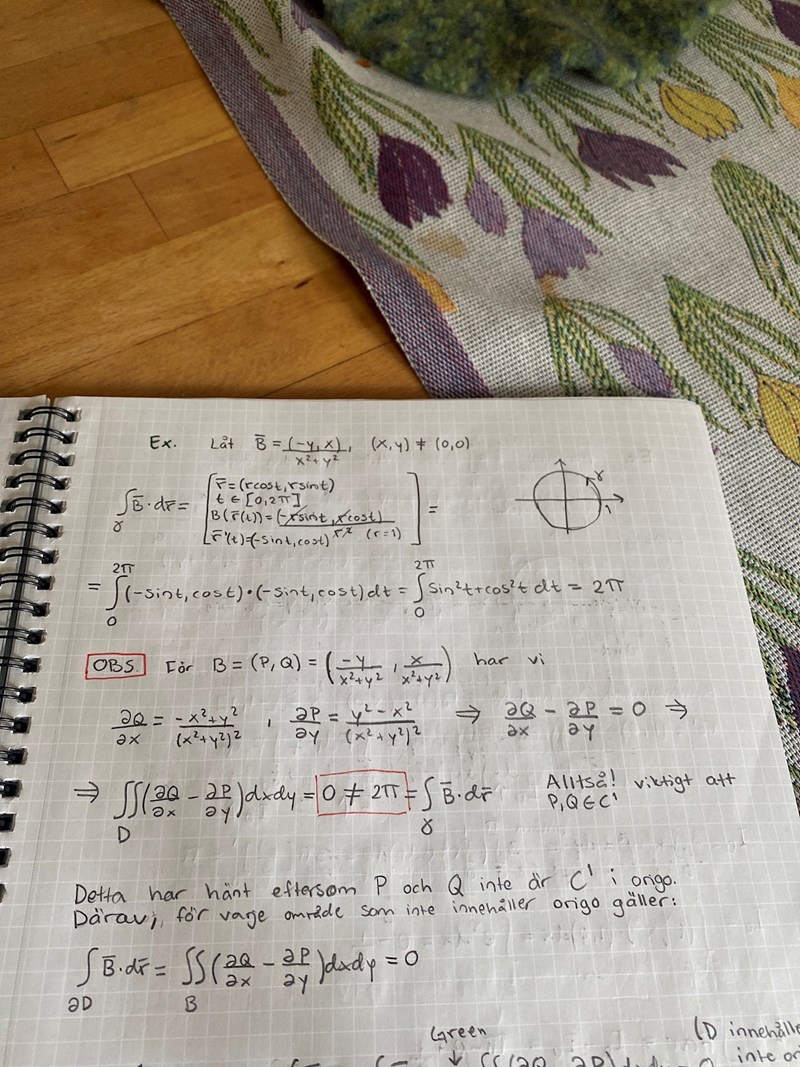 Ex. Låt B̄ = (-y,x)/(x²+y²), (x,y) ≠ (0,0)
∫_γ B̄·dr̄ = [r̄ = (rcost, rsint)
t ∈ [0,2π]
B(r̄(t)) = (-rsint, rcost)/r²
r̄'(t) = (-sint, cost) (r=1)] =
γ
1
= ∫_0^{2π} (-sint, cost)•(-sint, cost)dt = ∫_0^{2π} sin²t+cos²t dt = 2π
OBS. För B = (P,Q) = (-y/(x²+y²), x/(x²+y²)) har vi
∂Q/∂x = (-x²+y²)/(x²+y²)², ∂P/∂y = (y²-x²)/(x²+y²)² ⇒ ∂Q/∂x - ∂P/∂y = 0 ⇒
⇒ ∬_D (∂Q/∂x - ∂P/∂y)dxdy = 0 ≠ 2π = ∫_γ B̄·dr̄
Alltså! viktigt att
P,Q∈C¹
Detta har hänt eftersom P och Q inte är C¹ i origo.
Därav, för varje område som inte innehåller origo gäller:
∫_∂D B̄·dr̄ = ∬_B (∂Q/∂x - ∂P/∂y)dxdy = 0
Green
(D innehålle
inte